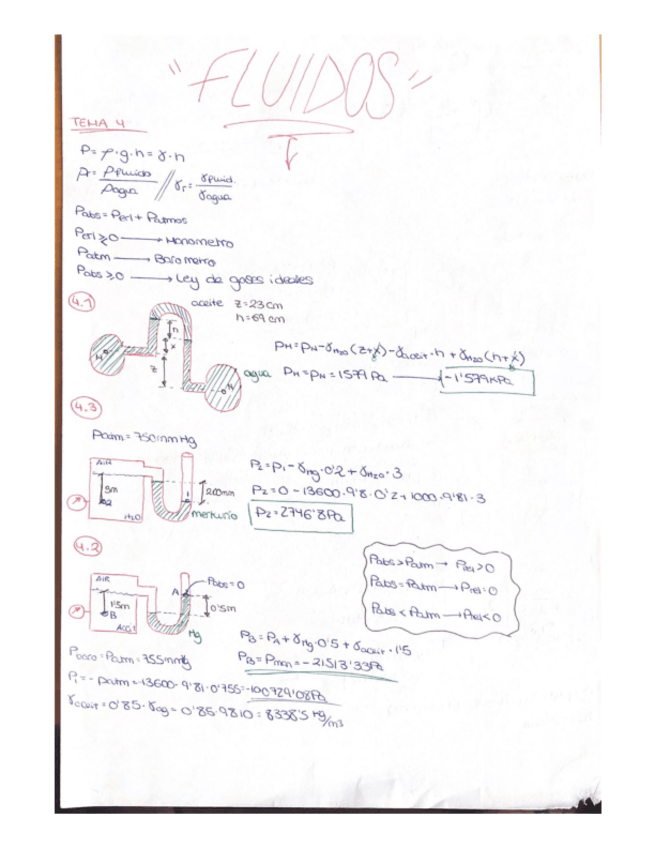 "FLUIDOS"
TEMA 4
P = ρ·g·h = γ·h
ρr = ρfluido / ρagua // γr = γfluid. / γagua
Pabs = Perl + Patmos
Perl ≷ 0 → Manometro
Patm → Barometro
Pabs ≥ 0 → Ley de gases ideales
4.1
aceite z = 23 cm
h = 69 cm
h
x
z
M
N
agua
PM = PN - γH2O (z+x) - γaceit · h + γH2O (h+x)
PM = PN = 1579 Pa → -1'579 KPa
4.3
Patm = 750 mm Hg
AIR
3m
2
H2O
1
200mm
mercurio
P2 = P1 - γHg · 0'2 + γH2O · 3
P2 = 0 - 13600 · 9'8 · 0'2 + 1000 · 9'81 · 3
P2 = 2746'8 Pa
4.2
AIR
1'5m
B
Aceit
A
Pabs = 0
0'5m
Hg
Pabs > Patm → Prel > 0
Pabs = Patm → Prel = 0
Pabs < Patm → Prel < 0
PB = PA + γHg · 0'5 + γaceit · 1'5
PB = Pman = -21513'33 Pa
Pbaro = Patm = 755 mmHg
P1 = - Patm = -13600 · 9'81 · 0'755 = -100729'08 Pa
γaceit = 0'85 · γag = 0'85 · 9810 = 8338'5 kg/m3